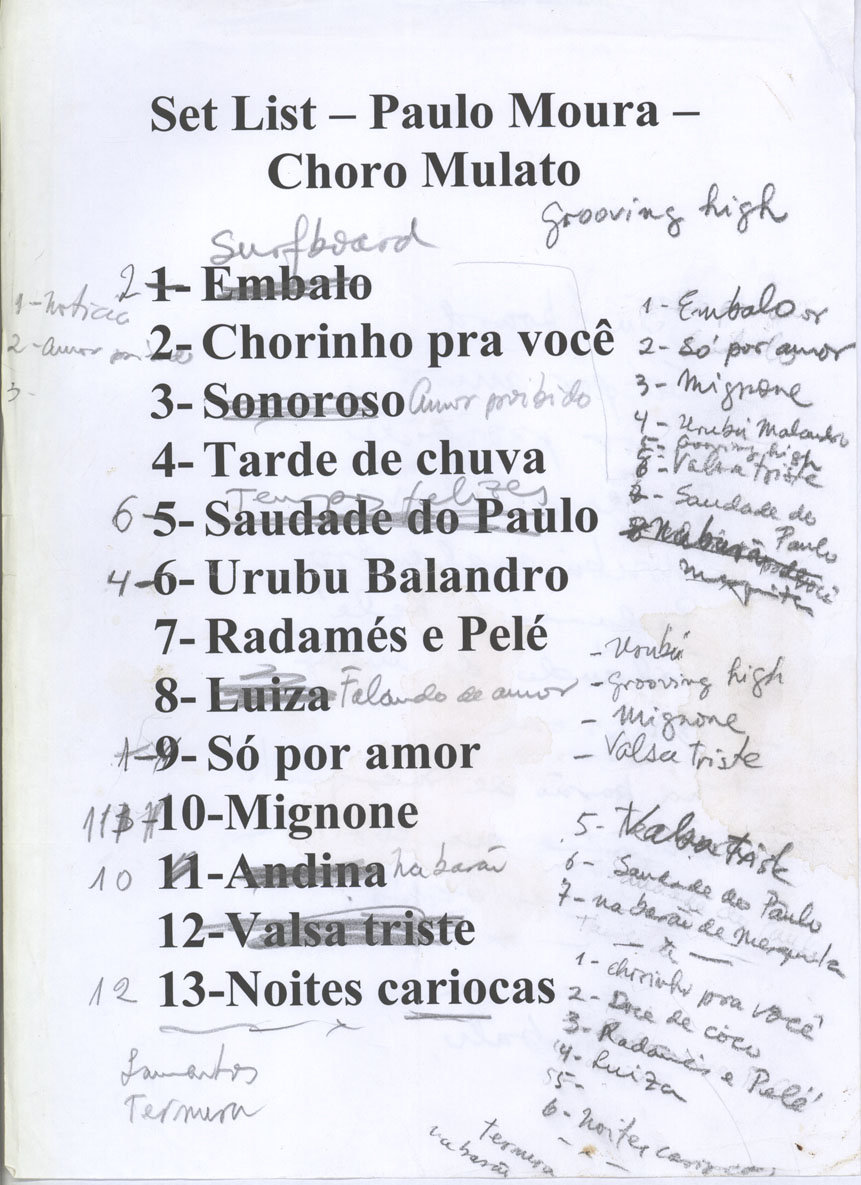 Set List – Paulo Moura –
Choro Mulato
Grooving high
Surfboard
2 1- Embalo
1- Noticia
2- Chorinho pra você
2- Amor
3-
3- Sonoroso Amor proibido
4- Tarde de chuva
Tempos felizes
6 5- Saudade do Paulo
4 6- Urubu Balandro
7- Radamés e Pelé
8- Luiza Falando de amor
9- Só por amor
10-Mignone
10 11-Andina na barão
12-Valsa triste
12 13-Noites cariocas
Lamentos
Ternura
1- Embalo or
2- Só por amor
3- Mignone
4- Urubú Malandro
5- Grooving high
6- Valsa triste
Saudade do
Paulo
8 Na barão
Mesquita
- Urubú
- Grooving high
- Mignone
- Valsa triste
5- Valsa Triste
6- Saudade do Paulo
7- na barão de Mesquita
1- Chorinho pra você
2- Doce de coco
3- Radamés e Pelé
4- Luiza
55-
6- Noites cariocas
ternura
na barão